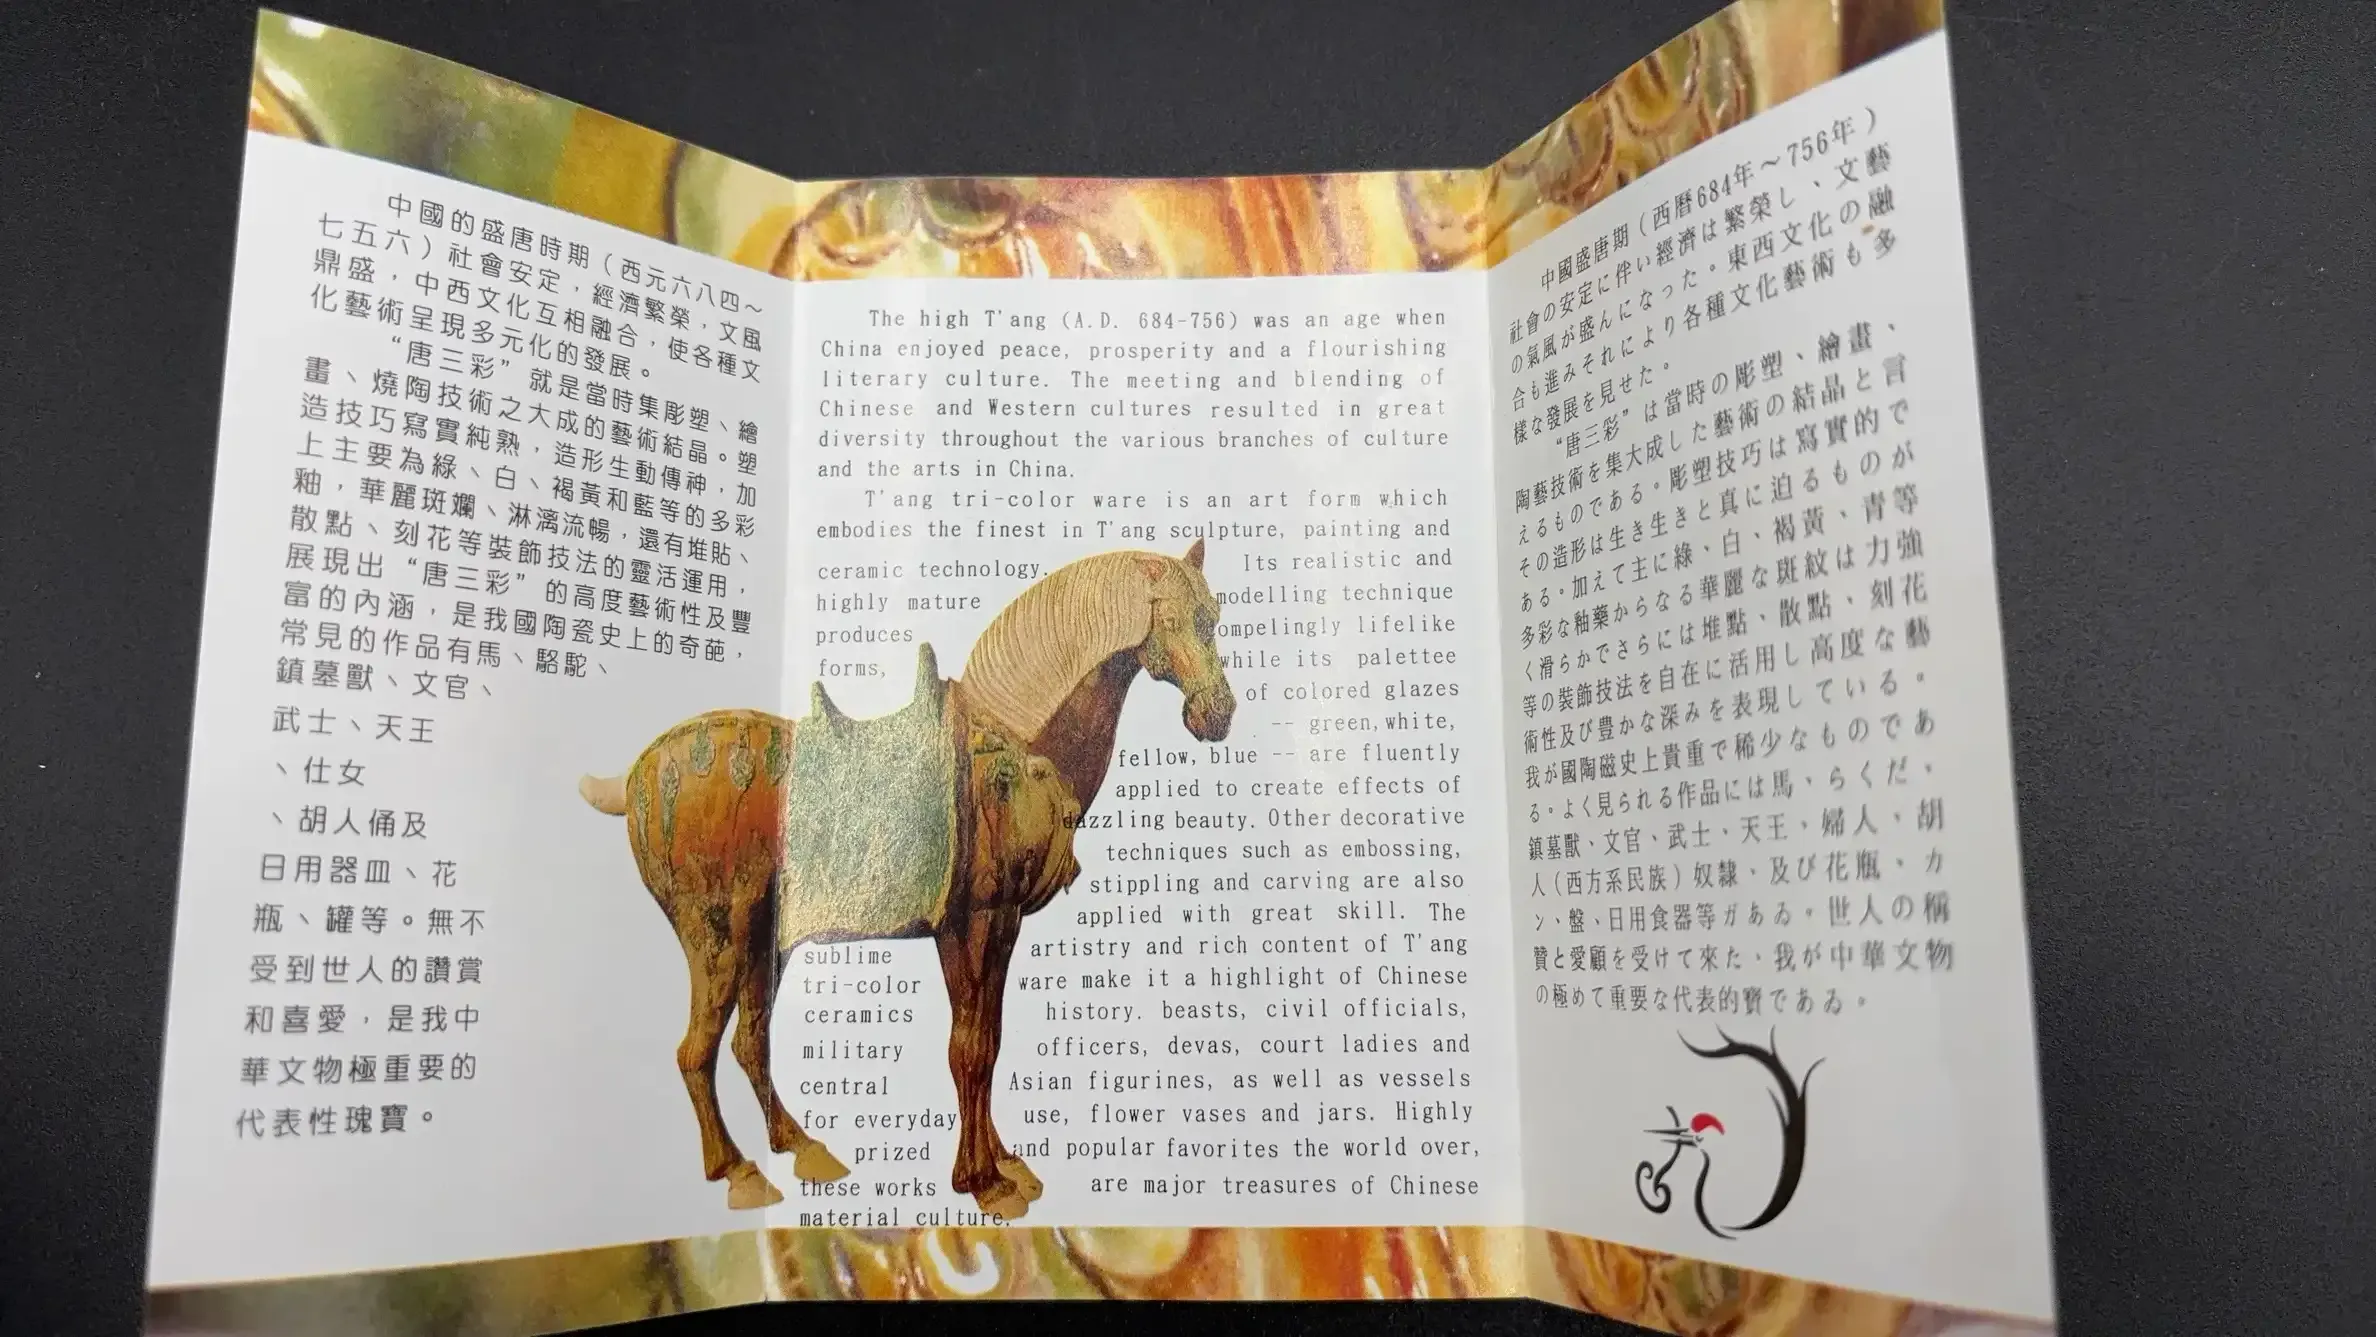 中國的盛唐時期（西元六八四～
七五六）社會安定，經濟繁榮，文風
鼎盛，中西文化互相融合，使各種文
化藝術呈現多元化的發展。
“唐三彩”就是當時集彫塑、繪
畫、燒陶技術之大成的藝術結晶。塑
造技巧寫實純熟，造形生動傳神，加
上主要為綠、白、褐黃和藍等的多彩
釉，華麗斑斕、淋漓流暢，還有堆貼、
散點、刻花等裝飾技法的靈活運用，
展現出“唐三彩”的高度藝術性及豐
富的內涵，是我國陶瓷史上的奇葩，
常見的作品有馬、駱駝、
鎮墓獸、文官、
武士、天王
、仕女
、胡人俑及
日用器皿、花
瓶、罐等。無不
受到世人的讚賞
和喜愛，是我中
華文物極重要的
代表性瑰寶。
The high T'ang (A.D. 684-756) was an age when
China enjoyed peace, prosperity and a flourishing
literary culture. The meeting and blending of
Chinese and Western cultures resulted in great
diversity throughout the various branches of culture
and the arts in China.
T'ang tri-color ware is an art form which
embodies the finest in T'ang sculpture, painting and
ceramic technology. Its realistic and
highly mature modelling technique
produces compelingly lifelike
forms, while its palettee
of colored glazes
-- green, white,
fellow, blue -- are fluently
applied to create effects of
dazzling beauty. Other decorative
techniques such as embossing,
stippling and carving are also
applied with great skill. The
sublime artistry and rich content of T'ang
tri-color ware make it a highlight of Chinese
ceramics history. beasts, civil officials,
military officers, devas, court ladies and
central Asian figurines, as well as vessels
for everyday use, flower vases and jars. Highly
prized and popular favorites the world over,
these works are major treasures of Chinese
material culture.
中國盛唐期（西曆684年～756年）
社會の安定に伴い經濟は繁榮し、文藝
の氣風が盛んになった。東西文化の融
合も進みそれにより各種文化藝術も多
樣な發展を見せた。
“唐三彩”は當時の彫塑、繪畫、
陶藝技術を集大成した藝術の結晶と言
えるものである。彫塑技巧は寫實的で
その造形は生き生きと真に迫るものが
ある。加えて主に綠、白、褐黃、青等
多彩な釉藥からなる華麗な斑紋は力強
く滑らかでさらには堆點、散點、刻花
等の裝飾技法を自在に活用し高度な藝
術性及び豊かな深みを表現している。
我が國陶磁史上貴重で稀少なものであ
る。よく見られる作品には馬、らくだ、
鎮墓獸、文官、武士、天王、婦人、胡
人（西方系民族）奴隸、及び花瓶、カ
ン、盤、日用食器等ガあゐ。世人の稱
贊と愛顧を受けて來た、我が中華文物
の極めて重要な代表的寶であゐ。